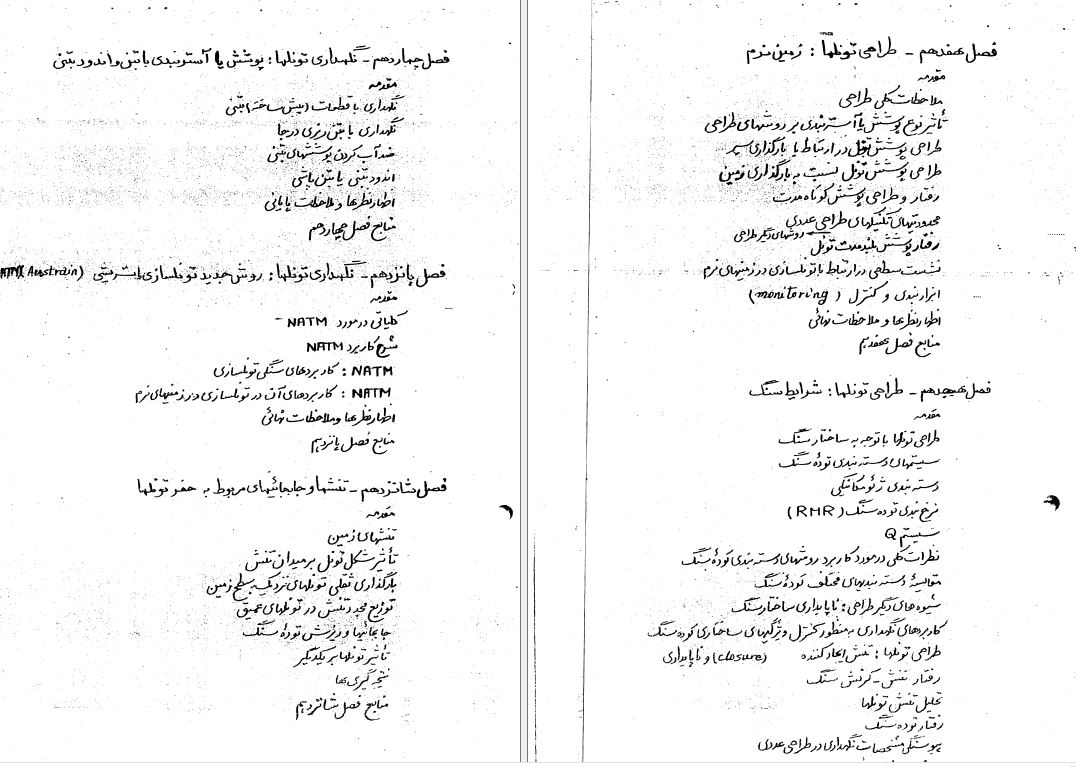 فصل هفدهم - طراحی تونلها: زمین نرم
مقدمه
ملاحظات کلی طراحی
تأثیر نوع پوشش یا آستربندی بر روشهای طراحی
طراحی پوشش تونل در ارتباط با بارگذاری سپر
طراحی پوشش تونل نسبت به بارگذاری زمین
رفتار و طراحی پوشش کوتاه مدت
محدودیتهای تکنیکهای طراحی عددی
روشهای دیگر طراحی
رفتار پوشش بلندمدت تونل
نشست سطحی در ارتباط با تونلسازی در زمینهای نرم
ابزاربندی و کنترل (monitoring)
اظهارنظرها و ملاحظات نهائی
منابع فصل هفدهم
فصل هیجدهم - طراحی تونلها: شرایط سنگ
مقدمه
طراحی تونلها با توجه به ساختار سنگ
سیستمهای دسته بندی تودهٔ سنگ
دسته بندی ژئومکانیکی
نرخ بندی توده سنگ (RMR)
سیستم Q
نظرات کلی در مورد کاربرد روشهای دسته بندی تودهٔ سنگ
مقایسهٔ دسته بندیهای مختلف تودهٔ سنگ
شیوه های دیگر طراحی: ناپایداری ساختار سنگ
کاربردهای نگهداری به منظور کنترل ویژگیهای ساختاری توده سنگ
طراحی تونلها: تنش ایجاد کننده (closure) و ناپایداری
رفتار تنش - کرنش سنگ
تحلیل تنش تونلها
رفتار توده سنگ
پیوستگی مشخصات نگهداری در طراحی عددی
فصل چهاردهم - نگهداری تونلها: پوشش یا آستربندی با بتن و اندود بتنی
مقدمه
نگهداری با قطعات (پیش ساخته) بتنی
نگهداری با بتن ریزی درجا
ضدآب کردن پوششهای بتنی
اندود بتنی یا بتن پاشی
اظهارنظرها و ملاحظات پایانی
منابع فصل چهاردهم
فصل پانزدهم - نگهداری تونلها: روش جدید تونلسازی اتریشی (Austrain) (NATM
مقدمه
کلیاتی در مورد NATM
شرح کاربرد NATM
NATM : کاربردهای سنگی تونلسازی
NATM : کاربردهای آن در تونلسازی در زمینهای نرم
اظهارنظرها و ملاحظات نهائی
منابع فصل پانزدهم
فصل شانزدهم - تنشها و جابجائیهای مربوط به حفر تونلها
مقدمه
تنشهای زمین
تأثیر شکل تونل بر میدان تنش
بارگذاری ثقلی تونلهای نزدیک به سطح زمین
توزیع مجدد تنش در تونلهای عمیق
جابجائیها و ریزش تودهٔ سنگ
تأثیر تونلها بر یکدیگر
نتیجه گیری ها
منابع فصل شانزدهم